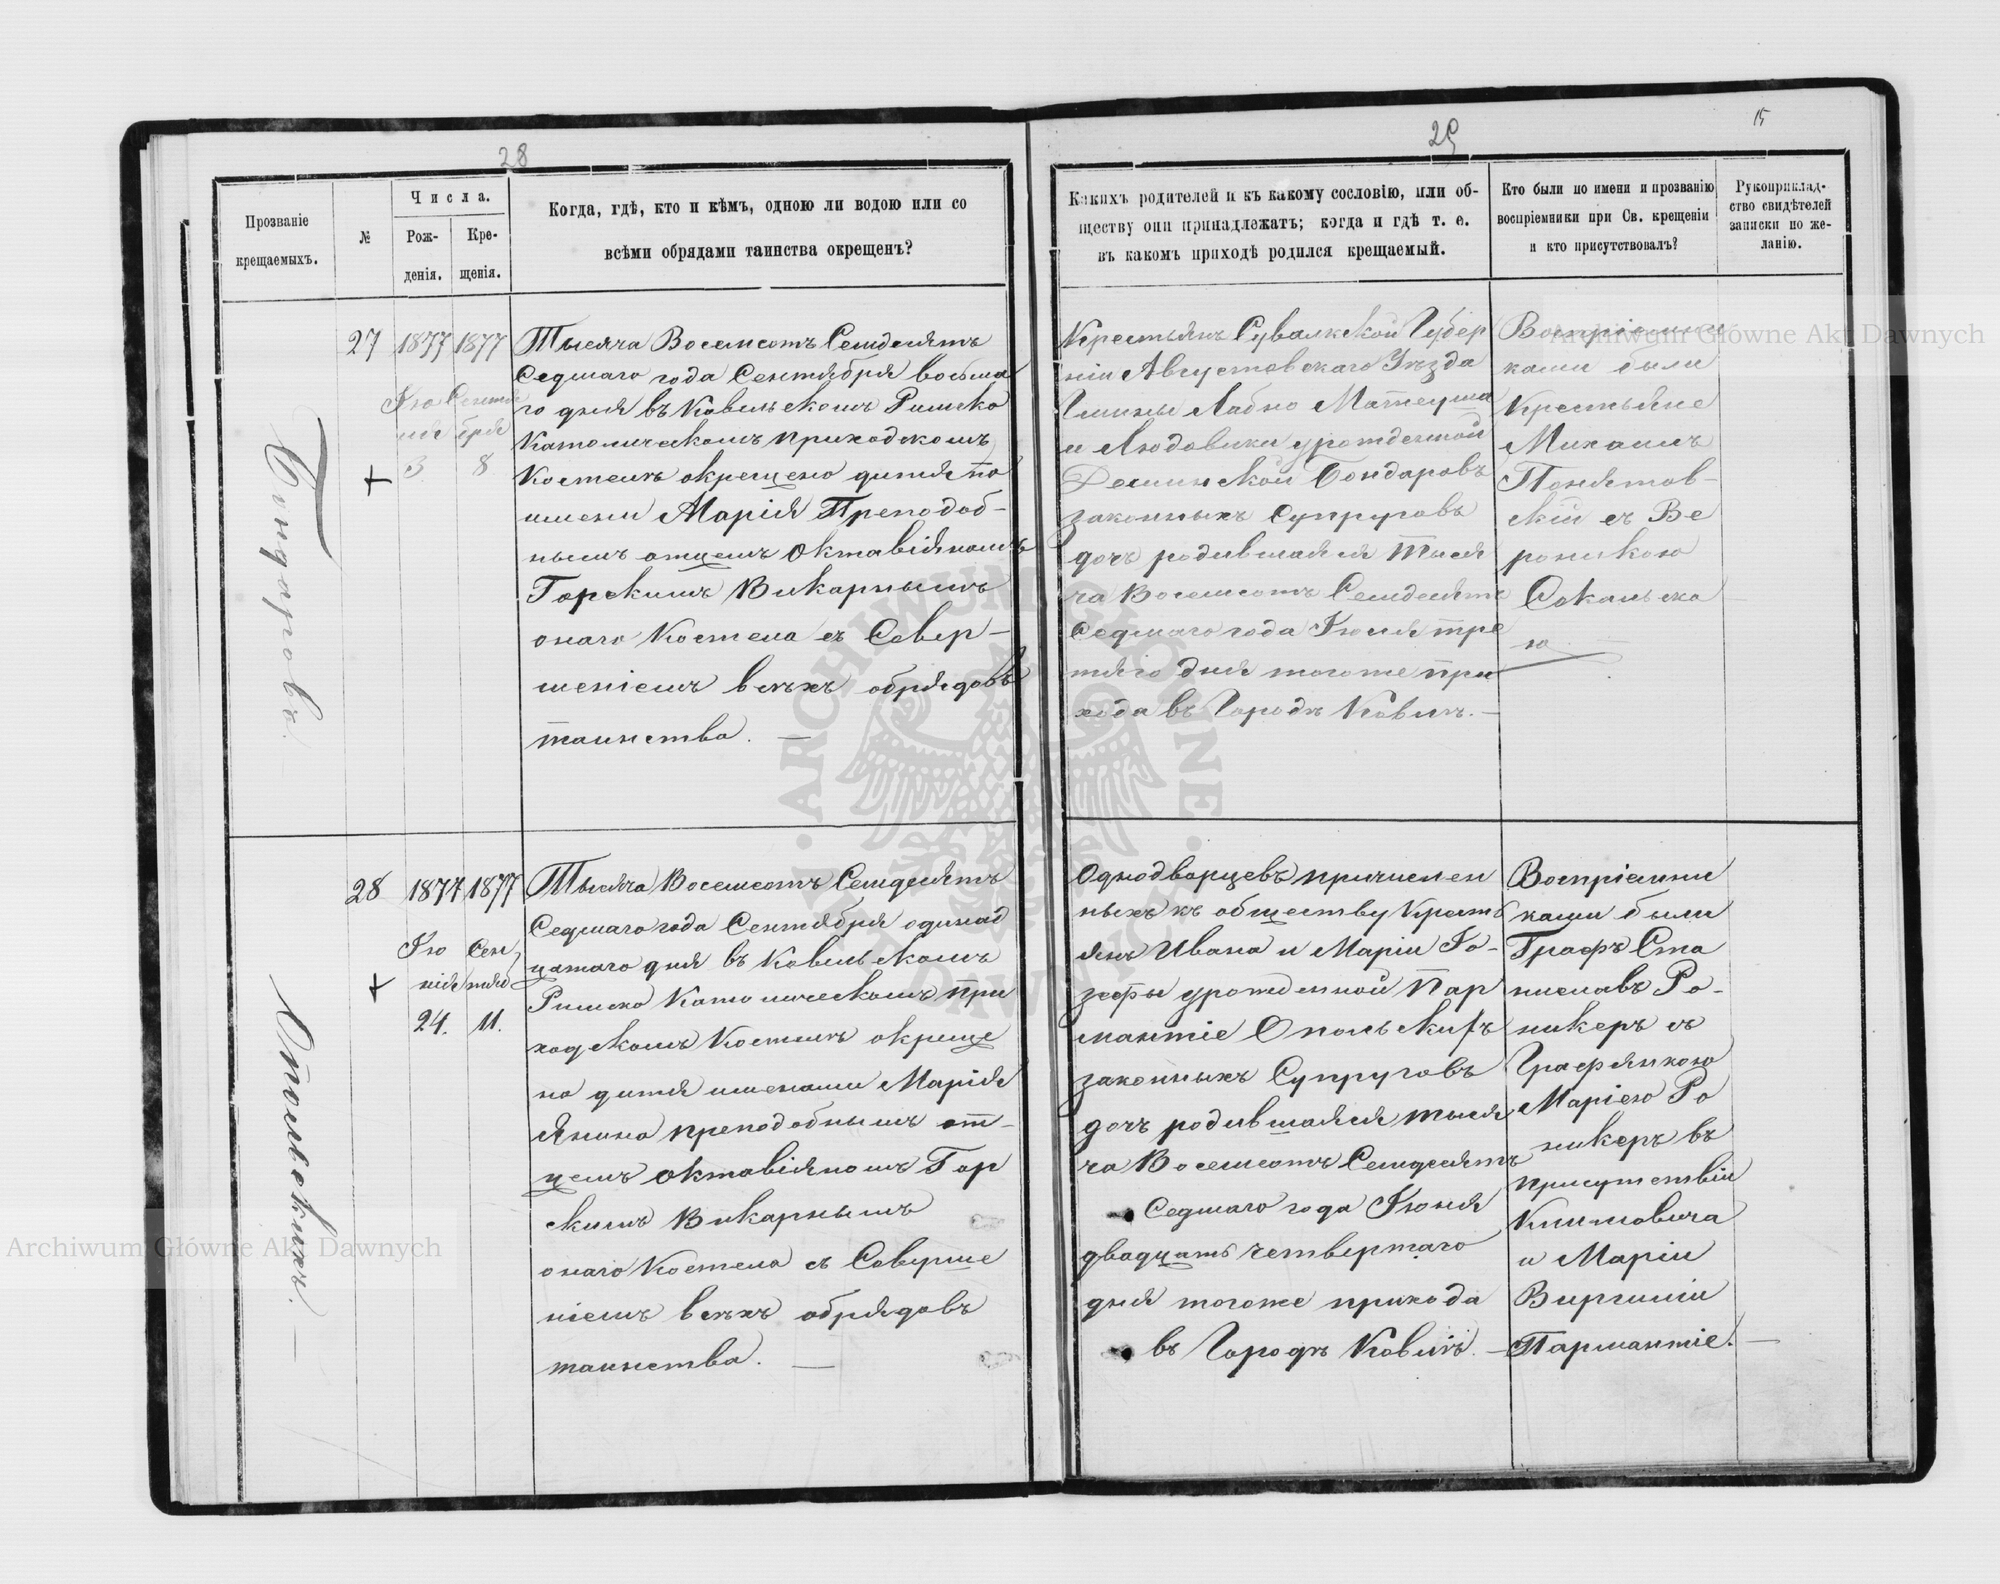 28
29
15
Прозваніе
крещаемыхъ.
№
Числа.
Рож-
денія.
Кре-
щенія.
Когда, гдѣ, кто и кѣмъ, одною ли водою или со
всѣми обрядами таинства окрещенъ?
Какихъ родителей и къ какому сословію, или об-
ществу они принадлежатъ; когда и гдѣ т. е.
въ какомъ приходѣ родился крещаемый.
Кто были по имени и прозванію
воспріемники при Св. крещеніи
и кто присутствовалъ?
Рукоприклад-
ство свидѣтелей
записки по же-
ланію.
Бондаровъ.
27
1877
Ію
лія
3
1877
Сентя
бря
8
Тысяча Восемсотъ Семдесятъ
Седмаго года Сентября восьма
го дня въ Ковельскомъ Римско
Католическомъ приходскомъ
Костелѣ окрещено дитя по
имени Марія Преподоб-
нымъ отцемъ Октавіяномъ
Горскимъ Викарнымъ
онаго Костела съ Совер-
шеніемъ всѣхъ обрядовъ
таинства. —
Крестьянъ Сувалкской Губер
ніи Августовскаго Уѣзда
Гмины Лабно Матеуша
и Людовики урожденной
Бондаровъ
законныхъ Супруговъ
дочь родившаяся тыся
ча Восемсотъ Семдесятъ
Седмаго года Іюля тре
тяго дня тогоже при
хода въ Городѣ Ковлѣ. —
Воспріемни
ками были
Крестьяне
Михаилъ
Понятов-
скій съ Ве
роникою
Сокальско
ю
Опольскихъ. —
28
1877
Ію
нія
24.
1877
Сен
тяб
11.
Тысяча Восемсотъ Семдесятъ
Седмаго года Сентября одинад
цатаго дня въ Ковельскомъ
Римско Католическомъ при
ходскомъ Костелѣ окреще
но дитя именами Марія
Янина преподобнымъ от-
цемъ Октавіяномъ Гор
скимъ Викарнымъ
онаго Костела съ Соверше
ніемъ всѣхъ обрядовъ
таинства. —
Однодворцевъ причислен
ныхъ къ обществу Кресть
янъ Ивана и Маріи Іо-
зефы урожденной Пар
мантіе Опольскихъ
законныхъ Супруговъ
дочь родившаяся тыся
ча Восемсотъ Семдесятъ
Седмаго года Іюня
двадцать четвертаго
дня тогоже прихода
въ Городѣ Ковлѣ. —
Воспріемни
ками были
Графъ Ста
ниславъ Ро-
никеръ съ
Графянкою
Маріею Ро
никеръ въ
присутствіи
Климовича
и Маріи
Виргиліи
Пармантіе. —
Archiwum Główne Akt Dawnych
Archiwum Główne Akt Dawnych
ARCHIWUM GŁÓWNE AKT DAWNYCH